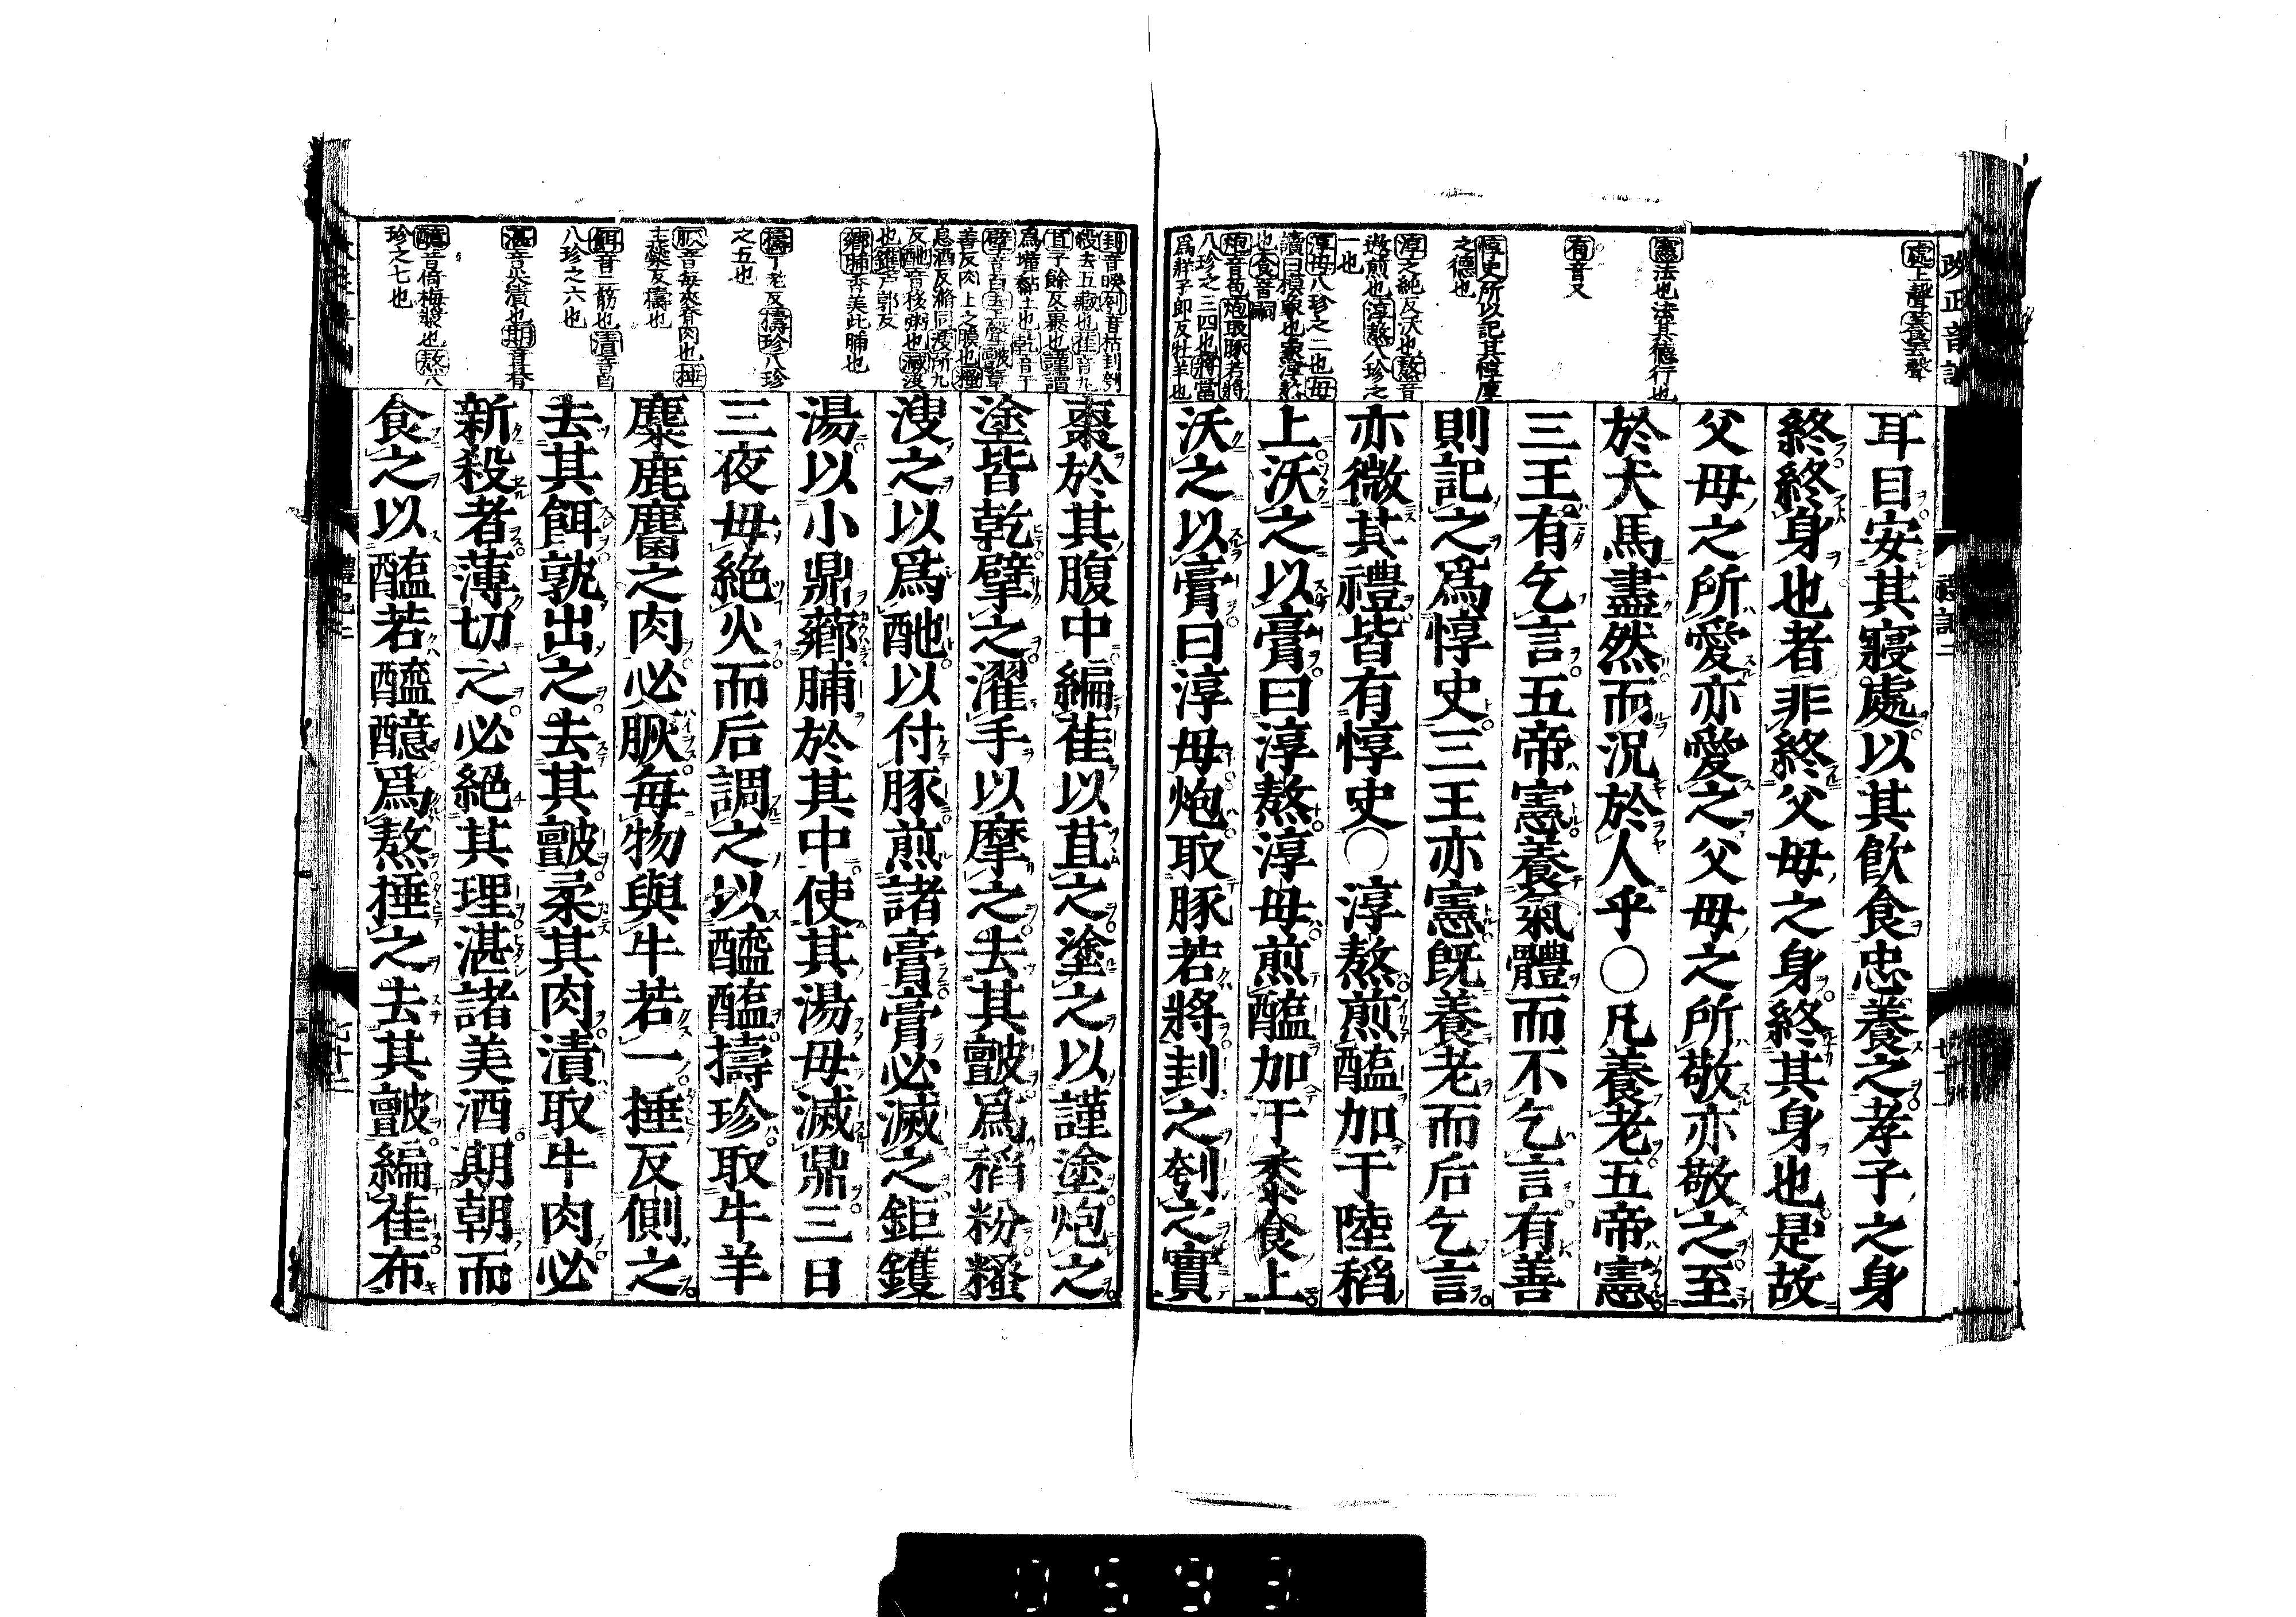 改正音訓
禮記二
處上聲養去聲
憲法也法其德行也
有音又
惇史所以記其惇厚
之德也
淳之純反沃也熬音
遨煎也淳熬八珍之
一也
淳母八珍之二也母
讀曰模象也象淳熬
也食音嗣
炮音苞炮取豚若將
八珍之三四也將當
爲牂子郎反牡羊也
耳目安其寢處以其飮食忠養之孝子之身
終終身也者非終父母之身終其身也是故
父母之所愛亦愛之父母之所敬亦敬之至
於犬馬盡然而況於人乎〇凡養老五帝憲
三王有乞言五帝憲養氣體而不乞言有善
則記之爲惇史三王亦憲旣養老而后乞言
亦微其禮皆有惇史〇淳熬煎醢加于陸稻
上沃之以膏曰淳熬淳母煎醢加于黍食上
沃之以膏曰淳母炮取豚若將刲之刳之實
刲音睽刳音枯刲刳
殺去五藏也萑音丸
苴子餘反裹也謹讀
爲墐黏土也乾音干
擘音百去上聲皽章
善反肉上之膜也糔
息酒反滫同溲所九
反酏音移粥也滅沒
也鑊戸郭反
薌脯香美此脯也
擣丁老反擣珍八珍
之五也
脄音每夾脊肉也捶
主蘂反擣也
餌音二筋也漬音自
八珍之六也
湛音尖漬也期音朞
醷音倚梅漿也熬八
珍之七也
棗於其腹中編萑以苴之塗之以謹塗炮之
塗皆乾擘之濯手以摩之去其皽爲稻粉糔
溲之以爲酏以付豚煎諸膏膏必滅之鉅鑊
湯以小鼎薌脯於其中使其湯毋滅鼎三日
三夜毋絕火而后調之以醯醢擣珍取牛羊
麋鹿麕之肉必脄每物與牛若一捶反側之
去其餌孰出之去其皽柔其肉漬取牛肉必
新殺者薄切之必絕其理湛諸美酒期朝而
食之以醢若醯醷爲熬捶之去其皽編萑布
禮記二
0593